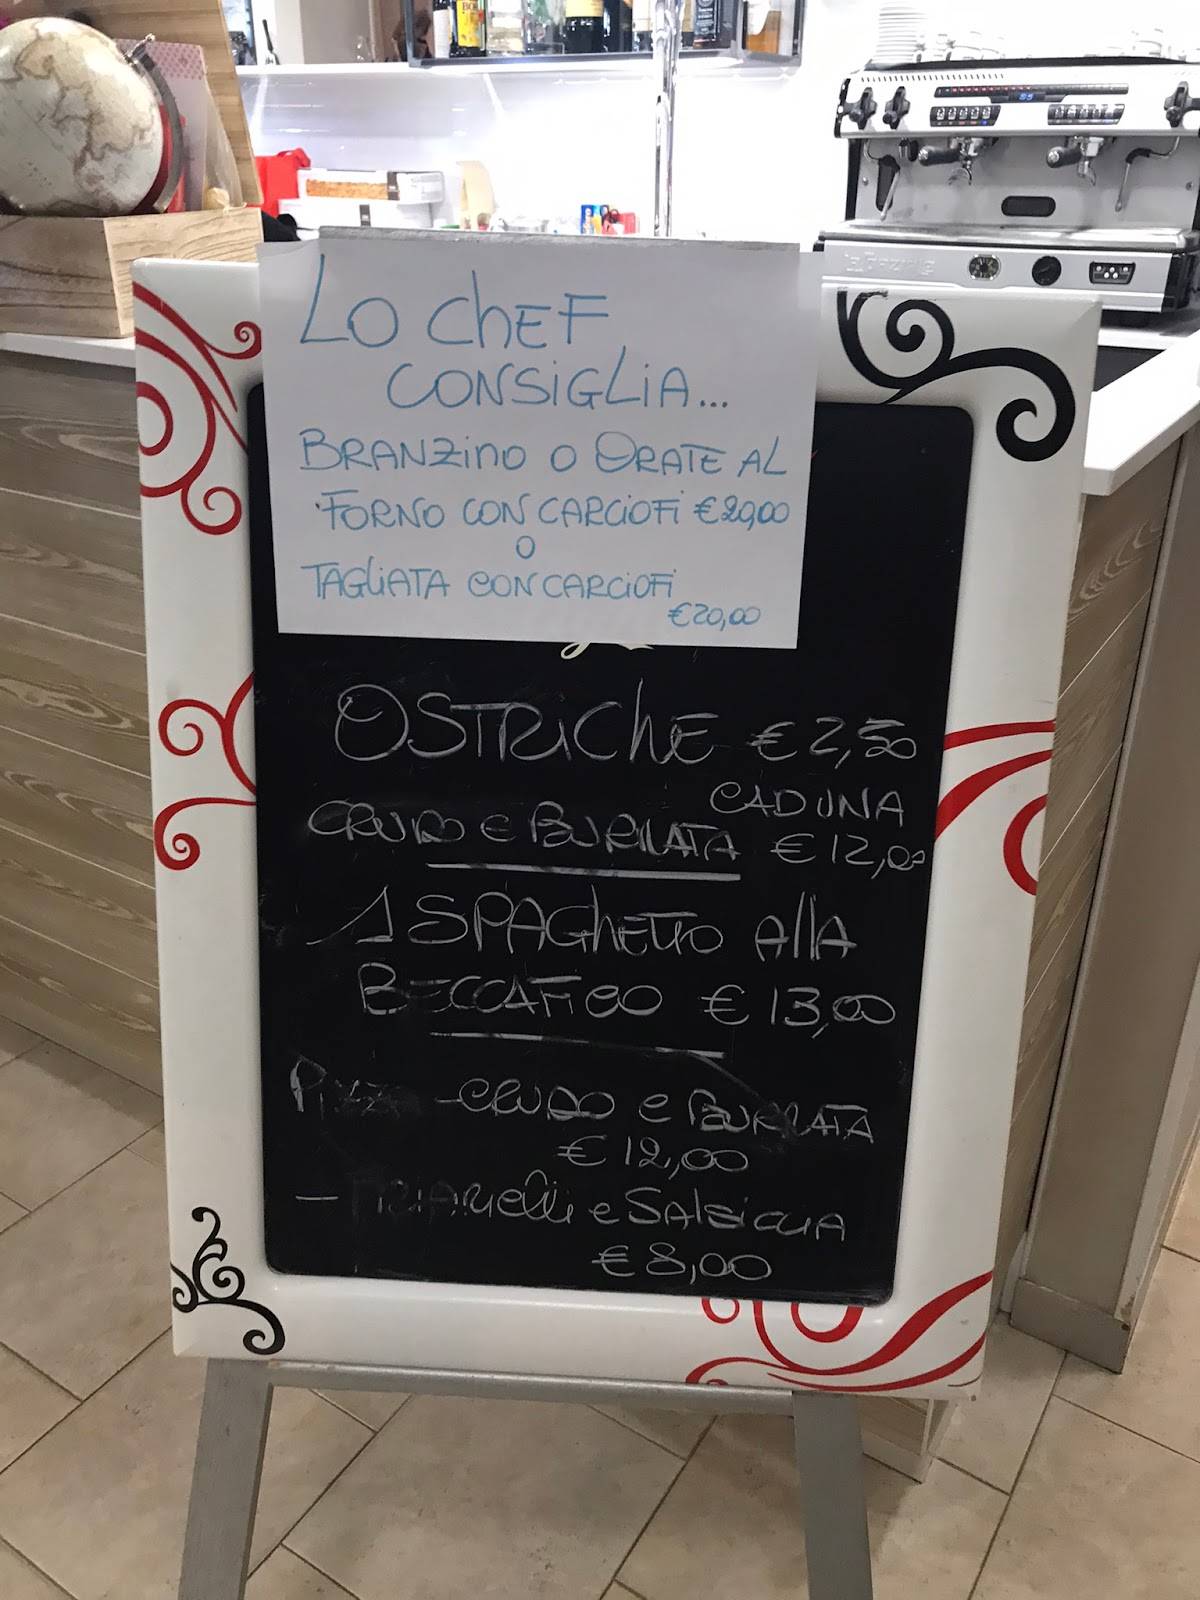 LO CHEF
CONSIGLIA...
BRANZINO O ORATE AL
FORNO CON CARCIOFI €20,00
O
TAGLIATA CON CARCIOFI
€20,00
OSTRICHE €2,50
CADUNA
CRUDO E BURRATA €12,00
1 SPAGHETTO ALLA
BECCAFICO €13,00
PIZZA - CRUDO E BURRATA
€12,00
- FRIARIELLI E SALSICCIA
€8,00